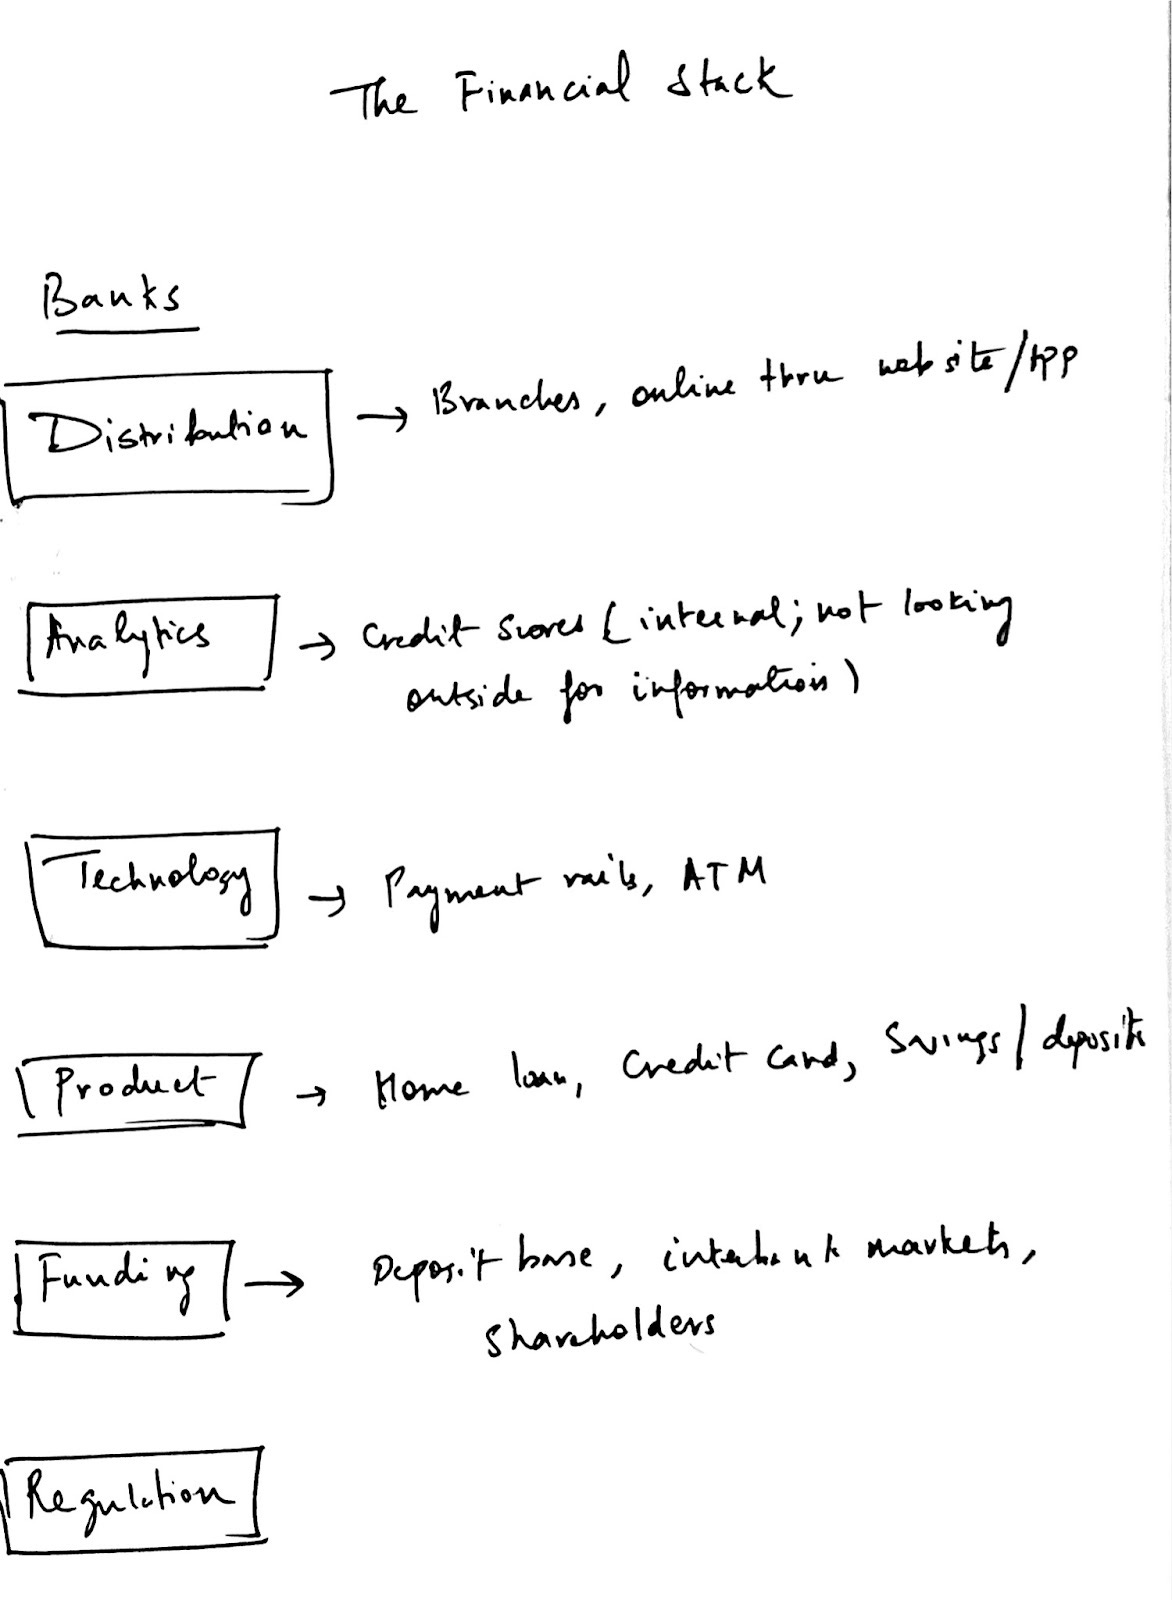 The Financial Stack
Banks
Distribution → Branches, online thru website/App
Analytics → Credit Scores (internal; not looking
outside for information)
Technology → Payment rails, ATM
Product → Home loan, Credit Card, Savings/deposits
Funding → Deposit base, interbank markets,
shareholders
Regulation